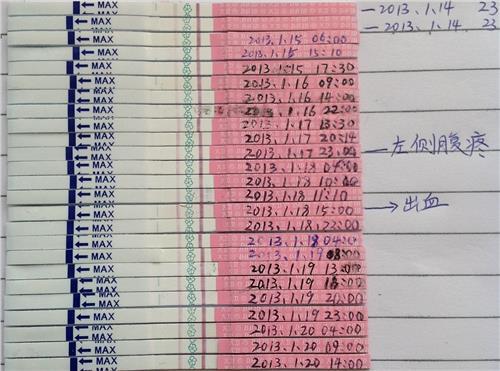 MAX — 2013.1.14 23
— 2013.1.14 23
MAX 2013.1.15 06:00
2013.1.15 15:10
MAX 2013.1.15 17:30
MAX 2013.1.16 09:00
MAX 2013.1.16 14:00
MAX 2013.1.16 22:00
MAX 2013.1.17 13:30
MAX 2013.1.17 20:14
MAX 2013.1.17 23:00 左侧腹疼
MAX 2013.1.18
MAX 2013.1.18 10:00
MAX 2013.1.18 11:10
MAX 2013.1.18 15:00 → 出血
MAX 2013.1.18 23:00
MAX 2013.1.18 04:00
MAX 2013.1.19 08:00
MAX 2013.1.19 13:00
MAX 2013.1.19
MAX 2013.1.19 20:00
MAX 2013.1.19 23:00
MAX 2013.1.20 04:00
MAX 2013.1.20 09:00
MAX 2013.1.20 14:00